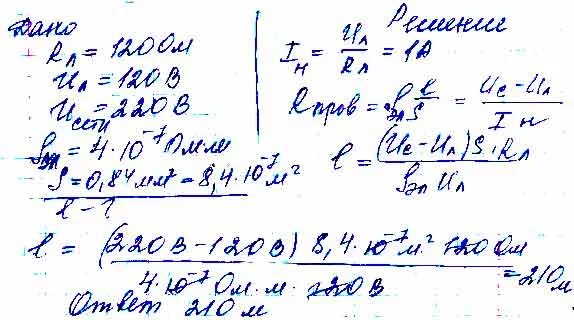 Дано
Rл = 120 Ом
Uл = 120 В
Uсети = 220 В
ρэл = 4·10⁻⁷ Ом м
S = 0,84 мм² = 8,4·10⁻⁷ м²
l - ?
Решение
Iн = Uл/Rл = 1А
Rпров = ρэл l/S = (Uс - Uл)/Iн
l = (Uс - Uл) S · Rл / ρэл Uл
l = (220В - 120В) 8,4·10⁻⁷ м² 120 Ом / 4·10⁻⁷ Ом·м·120В = 210 м
Ответ 210 м